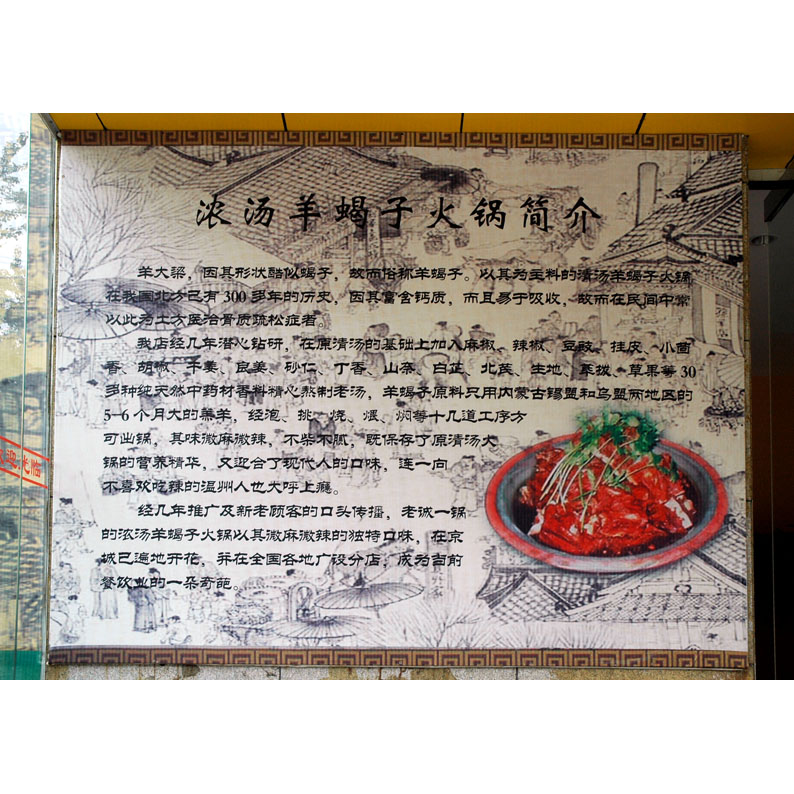 浓汤羊蝎子火锅简介
羊大梁，因其形状酷似蝎子，故而俗称羊蝎子。以其为主料的清汤羊蝎子火锅
在我国北方已有300多年的历史，因其富含钙质，而且易于吸收，故而在民间中常
以此为土方医治骨质疏松症者。
我店经几年潜心钻研，在原清汤的基础上加入麻椒、辣椒、豆豉、挂皮、小茴
香、胡椒、干姜、良姜、砂仁、丁香、山奈、白芷、北芪、生地、荜拨、草果等30
多种纯天然中药材香料精心熬制老汤，羊蝎子原料只用内蒙古锡盟和乌盟两地区的
5-6个月大的羔羊，经泡、挑、烧、煨、焖等十几道工序方
可出锅，其味微麻微辣，不柴不腻，既保存了原清汤火
锅的营养精华，又迎合了现代人的口味，连一向
不喜欢吃辣的温州人也大呼上瘾。
经几年推广及新老顾客的口头传播，老诚一锅
的浓汤羊蝎子火锅以其微麻微辣的独特口味，在京
城已遍地开花，并在全国各地广设分店，成为当前
餐饮业的一朵奇葩。
迎光临